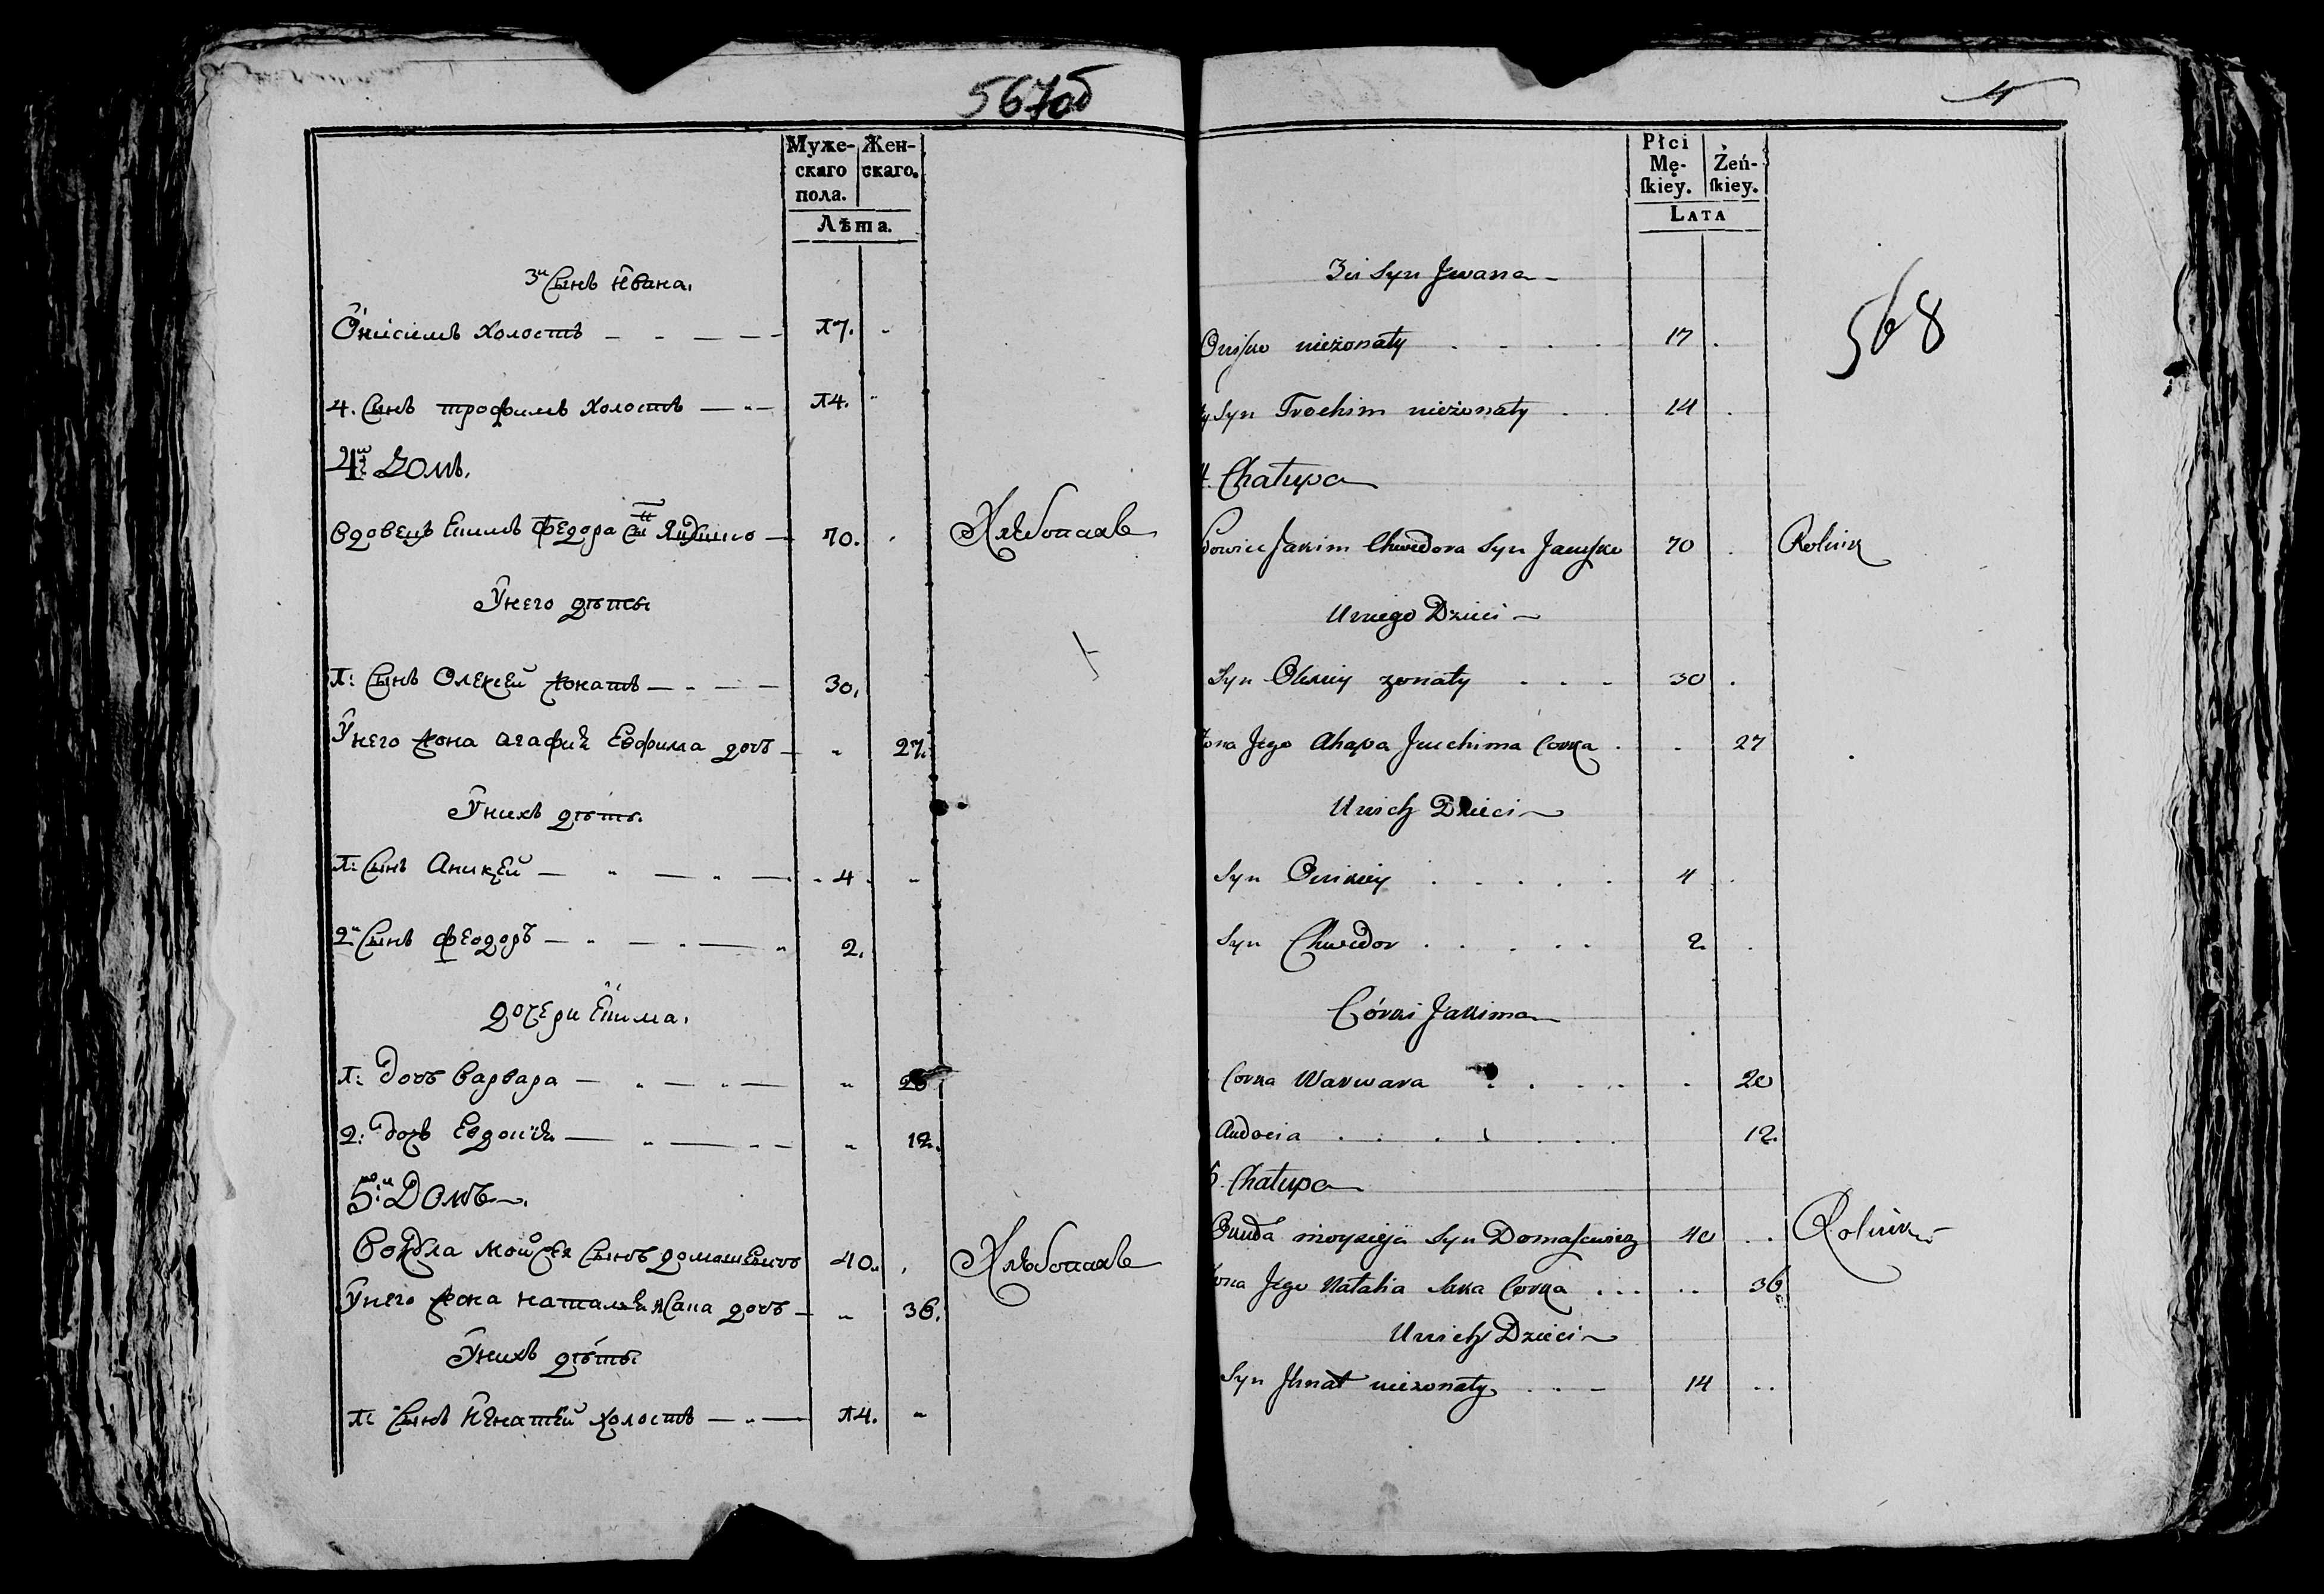 567об
Муже-
скаго
пола.
Жен-
скаго.
Лѣта.
3й Сынъ Ивана.
Онисимъ холостъ 17.
4. Сынъ трофимъ холостъ 14.
4й Домъ.
Вдовецъ Екимъ Федора Сынъ 70. Хлѣбопахъ
У него дѣты
1: Сынъ Олексей жонатъ 30.
У него жона Агафия Евфима дочь 27.
У нихъ дѣты.
1: Сынъ Аникей 4
2й Сынъ феодоръ 2.
дочери Екима.
1: дочь Варвара 20
2: дочь Евдокия 12.
5й Домъ.
Мойсея Сынъ домашевичъ 40. Хлѣбопахъ
У него жона наталия дочь 36.
У нихъ дѣты
1: Сынъ Игнатей холостъ 14.
4
Płci
Mę-
ſkiey.
Żeń-
ſkiey.
LATA
568
3ci Syn Jwana
Onisko nieżonaty 17
Syn Trochim nieżonaty 14
4. Chałupa
Jakim Chwedora Syn 70 Rolnik
U niego Dzieci
Syn Olexiey zonaty 30
Żona Jego Ahapa Juchima Corka 27
U nich Dzieci
Syn Onikiey 4
Syn Chwedor 2
Córki Jakima
Corka Warwara 20
Audocia 12.
5. Chałupa
moysieja Syn Domaszewicz 40 Rolnik
Żona Jego Natalia Corka 36
U nich Dzieci
Syn Jhnat niezonaty 14